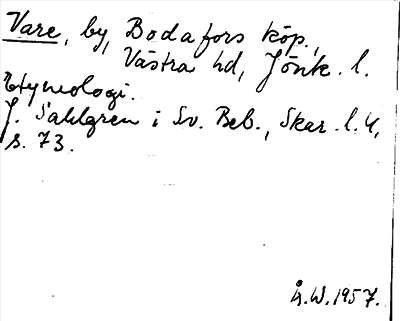 Vare, by, Bodafors köp.,
Västra hd, Jönk. l.
Etymologi.
J. Sahlgren i Sv. Beb., Skar. l. 4,
s. 73.
Å.W. 1957.